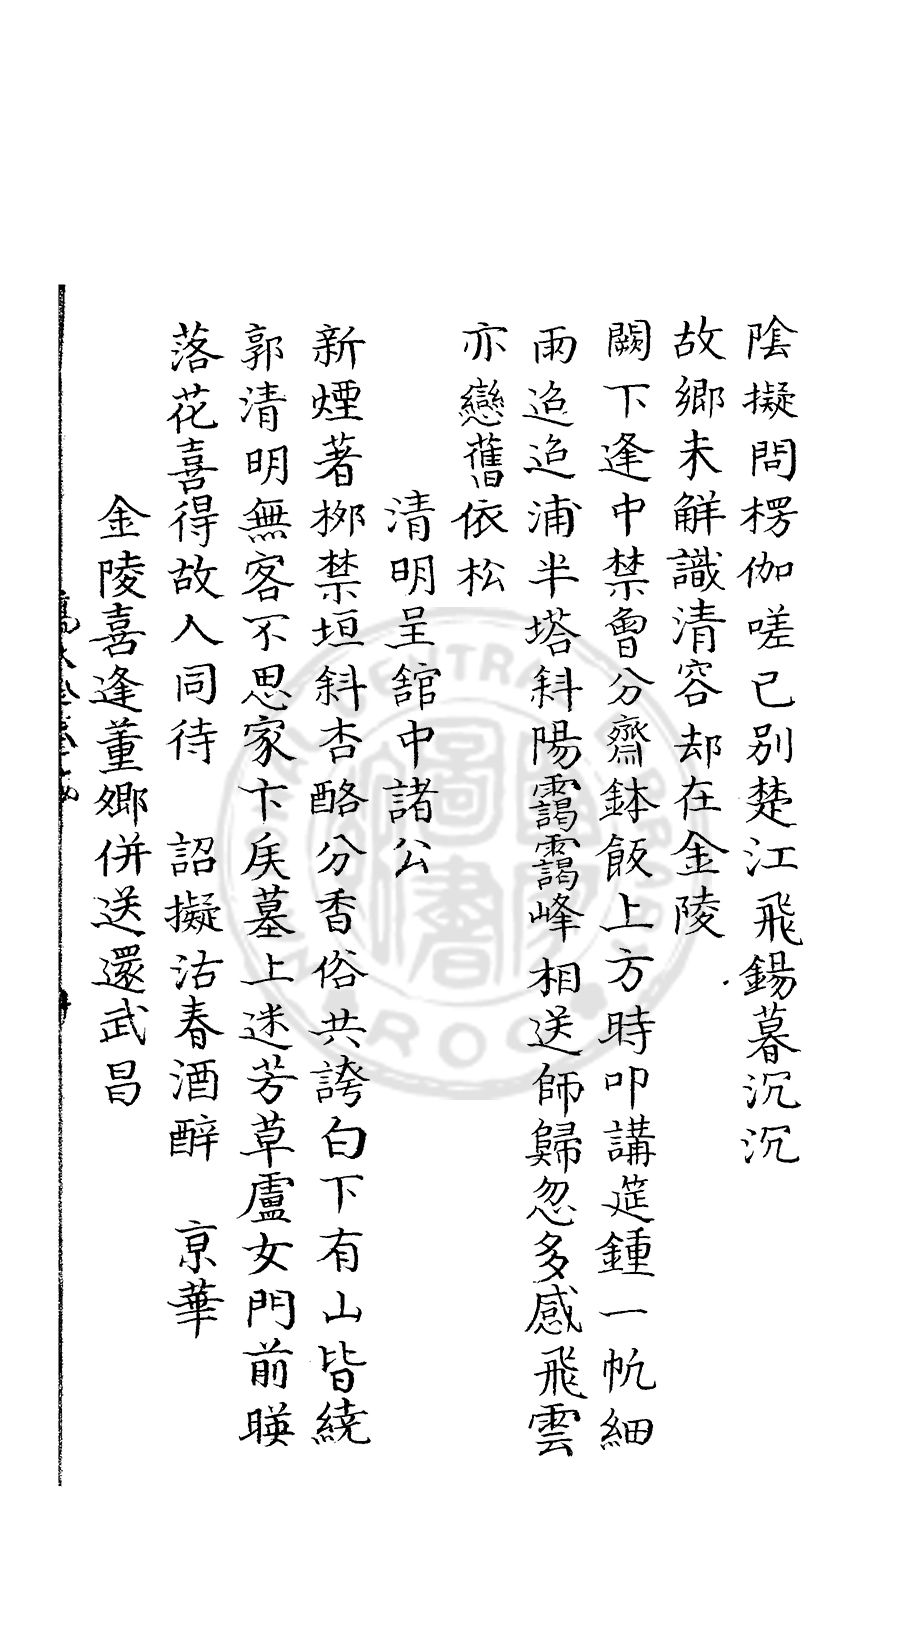 陰擬問楞伽嗟已別楚江飛錫暮沉沉
故鄉未解識清容却在金陵
闕下逢中禁會分齋鉢飯上方時叩講筵鍾一帆細
雨迢迢浦半塔斜陽靄靄峰相送師歸忽多感飛雲
亦戀舊依松
清明呈舘中諸公
新煙著桞禁垣斜杏酪分香俗共誇白下有山皆繞
郭清明無客不思家卞矦墓上迷芳草盧女門前暎
落花喜得故人同待 詔擬沽春酒醉 京華
金陵喜逢董鄉併送還武昌
NATIONAL CENTRAL LIBRARY
R.O.C.
國家圖書館